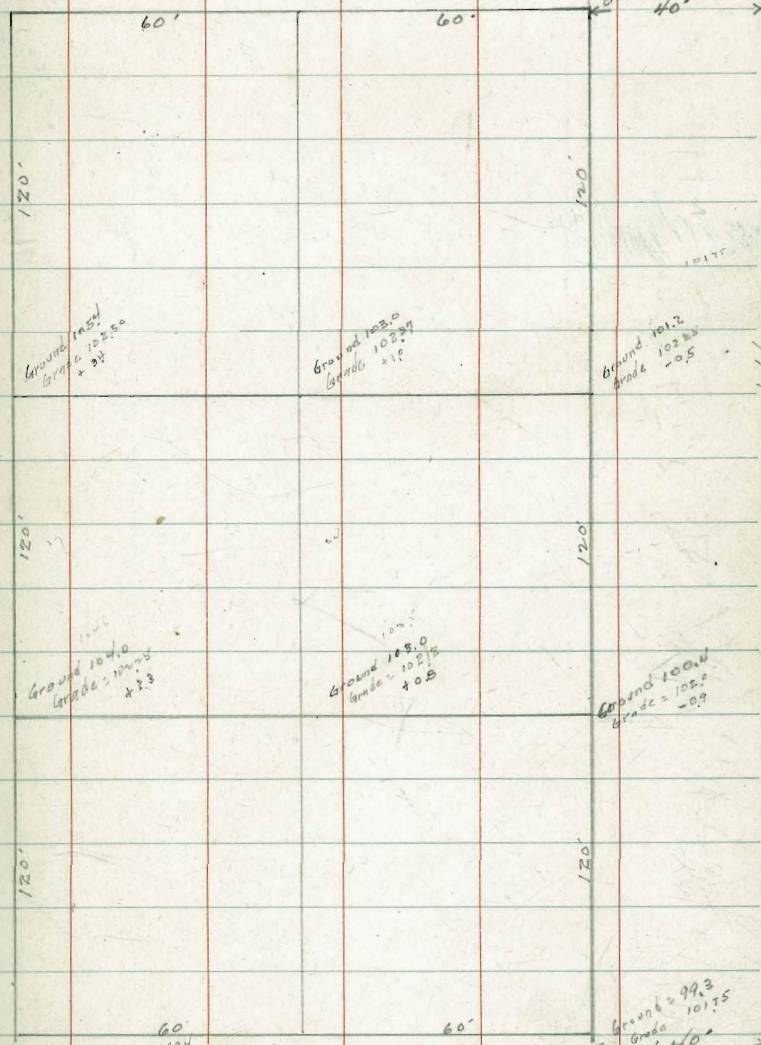 60' 60' 40'
120' 120'
10175
Ground 105.4
Grade 102.50
Ground 103.0
Grade 102
+1.0
Ground 101.2
Grade 102
-0.5
120' 120'
Ground 104.0
Grade =
Ground 103.0
Grade = 102
+0.8
Ground 100.4
Grade = 102.0
-0.9
120' 120'
Ground = 99.3
Grade 101.75
60' 60'